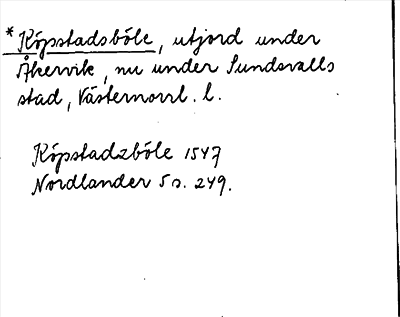 * Köpstadsböle, utjord under
Åkervik, nu under Sundsvalls
stad, Västernorrl. l.
Köpstadzböle 1547
Nordlander 5 s. 249.